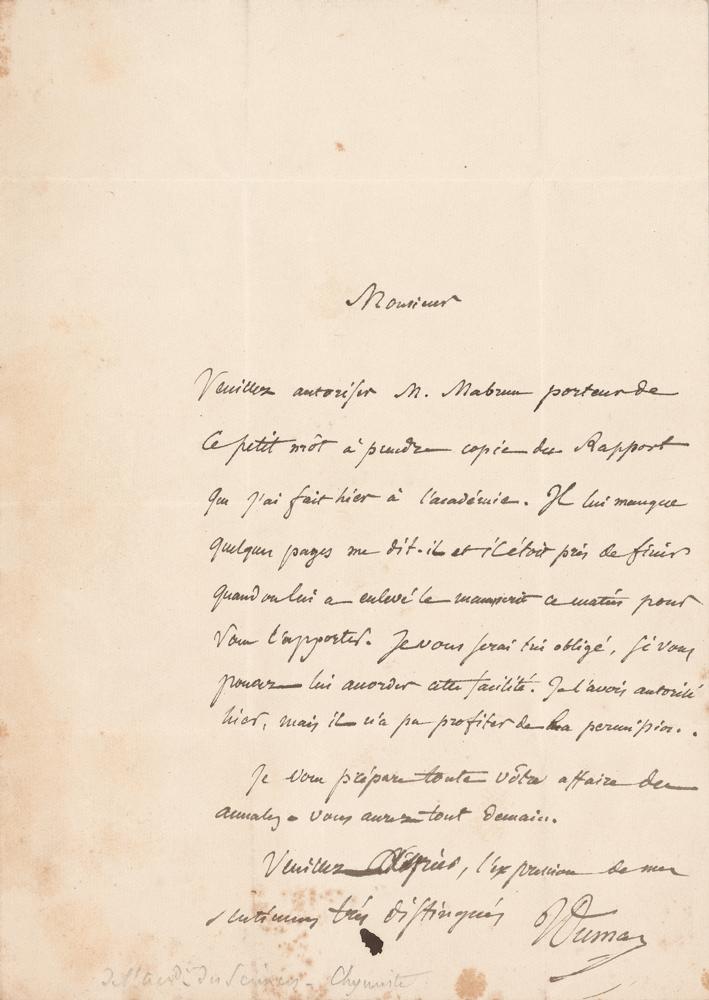 Monsieur
Veuillez autoriser M. Mabrun porteur de
ce petit mot à prendre copie du Rapport
que j'ai fait hier à l'académie. Il lui manque
quelques pages me dit-il et il étoit près de finir
quand on lui a enlevé le manuscrit ce matin pour
vous l'apporter. Je vous serai très obligé, si vous
pouvez lui accorder cette facilité. Je l'avois autorisé
hier, mais il n'a pu profiter de la permission.
Je vous prépare toute vôtre affaire des
annales. vous aurez tout demain.
Veuillez, l'expression de mes
sentimens très distingués
Dumas
De l'Acad. des Sciences - Chymiste